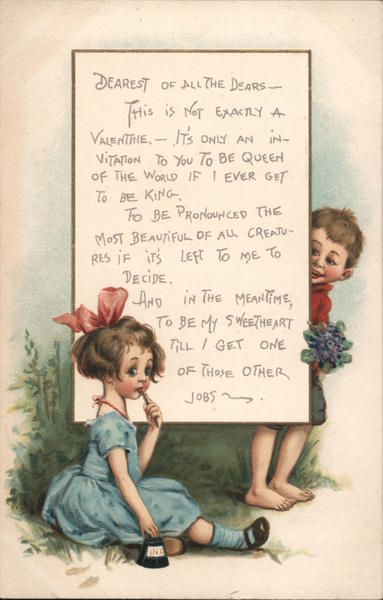 DEAREST OF ALL THE DEARS—
THIS IS NOT EXACTLY A
VALENTINE.— IT'S ONLY AN IN-
VITATION TO YOU TO BE QUEEN
OF THE WORLD IF I EVER GET
TO BE KING.
TO BE PRONOUNCED THE
MOST BEAUTIFUL OF ALL CREATU-
RES IF IT'S LEFT TO ME TO
DECIDE.
AND IN THE MEANTIME,
TO BE MY SWEETHEART
TILL I GET ONE
OF THOSE OTHER
JOBS—.
INK